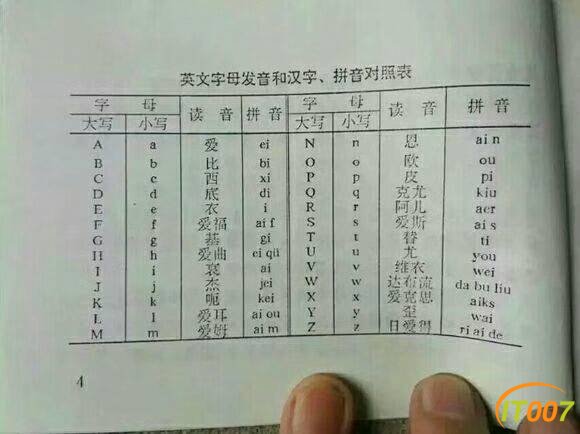 英文字母发音和汉字、拼音对照表
字 母 读 音 拼 音 字 母 读 音 拼 音
大写 小写 大写 小写
A a 爱 ei N n 恩 ai n
B b 比 bi O o 欧 ou
C c 西 xi P p 皮 pi
D d 底 di Q q 克尤 kiu
E e 衣 i R r 阿儿 aer
F f 爱福 ai f S s 爱斯 ai s
G g 基 gi T t 替 ti
H h 爱曲 ei qü U u 尤 you
I i 哀 ai V v 维衣 wei
J j 杰 jei W w 达布流 da bu liu
K k 呃 kei X x 爱克思 aiks
L l 爱耳 ai ou Y y 歪 wai
M m 爱姆 ai m Z z 日爱得 ri ai de
4
IT007